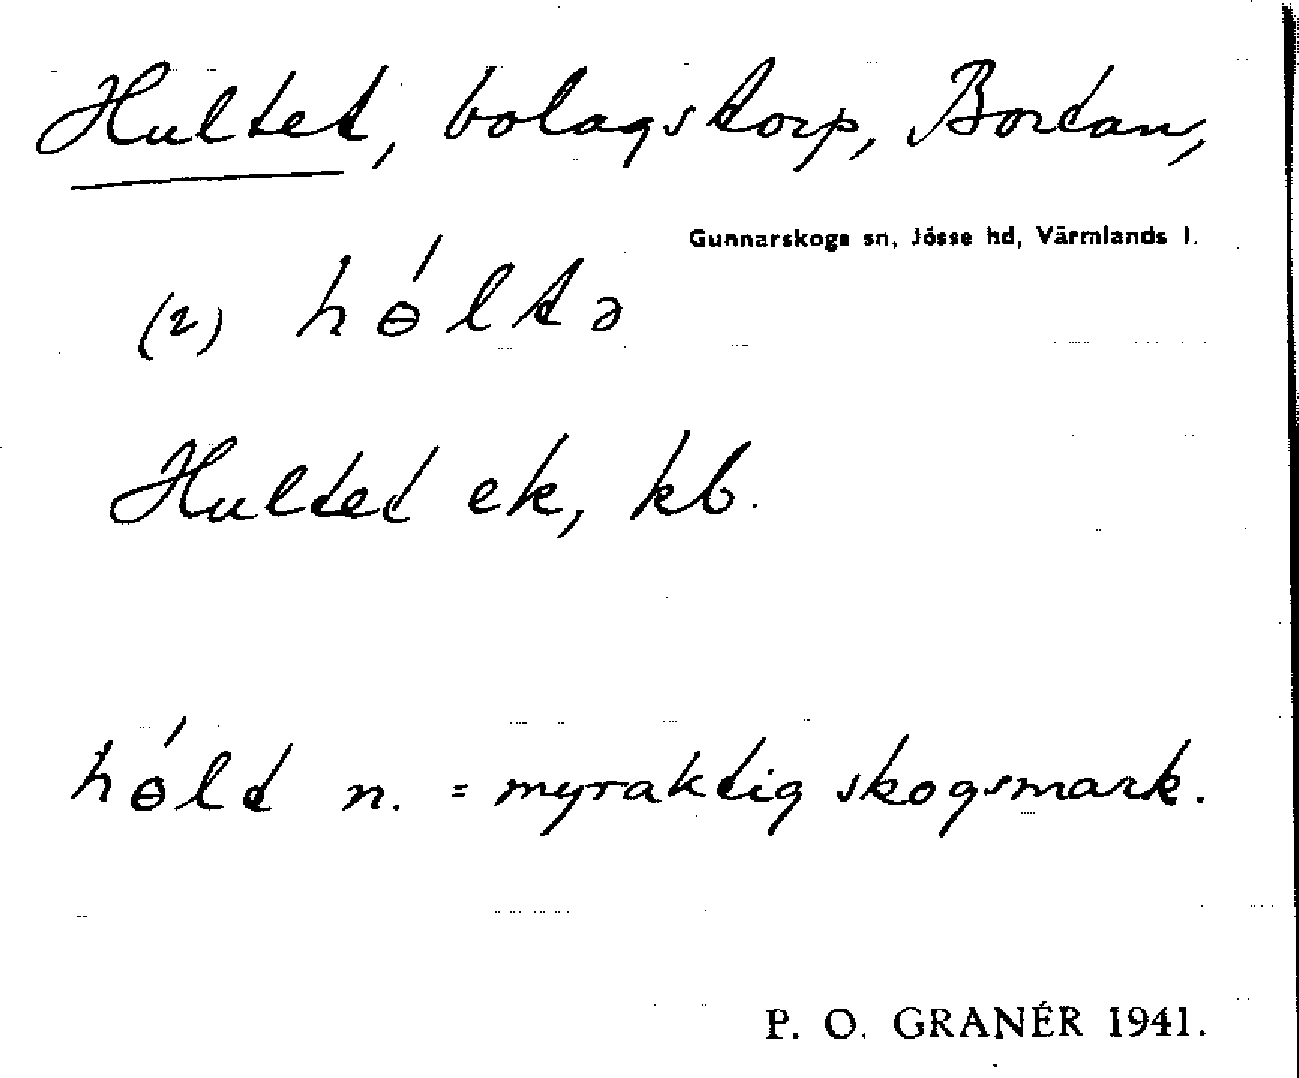 Hultet, bolagstorp, Bortan,
Gunnarskogs sn, Jösse hd, Värmlands l.
(2) hɵ́ltə
Hultet ek, kb.
hɵ́lt n. = myraktig skogsmark.
P. O. GRANÉR 1941.